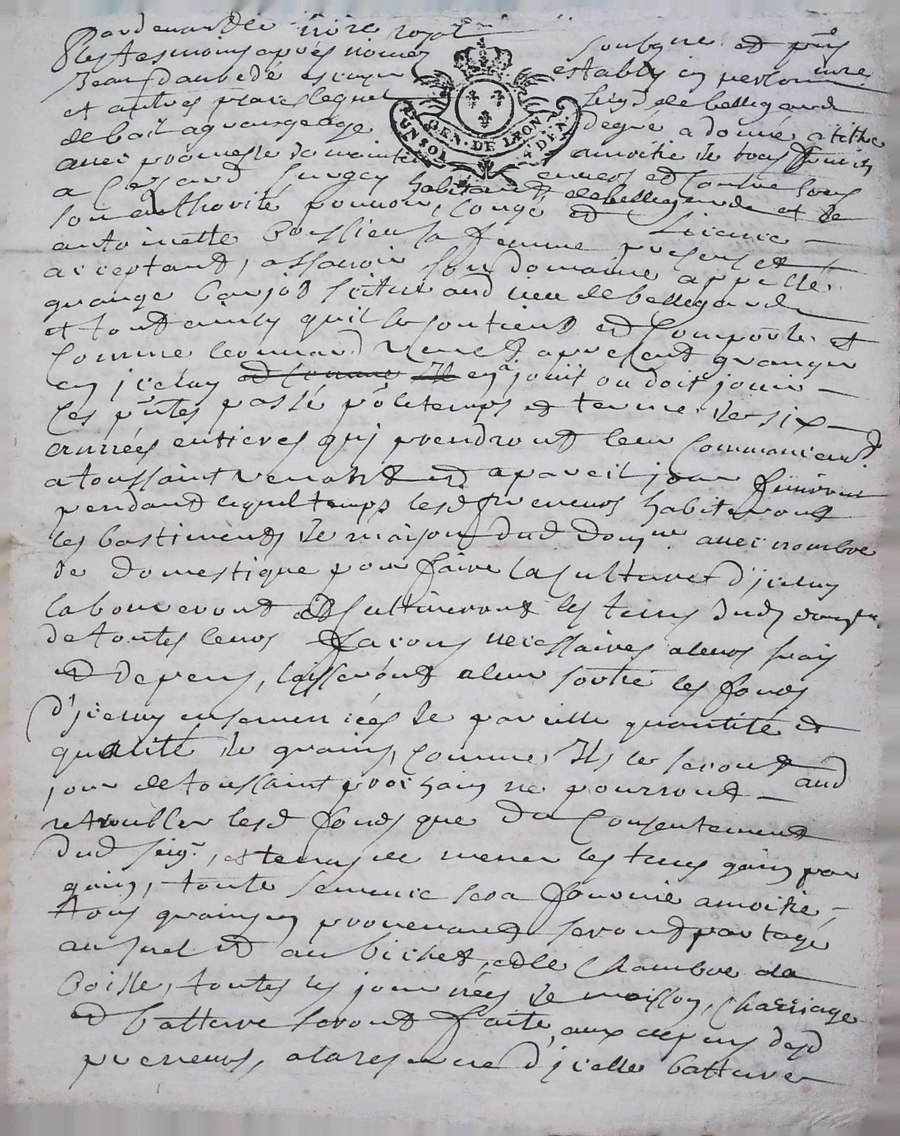 Pardevant le nore royal soubzne et pnts
les tesmoins apres nomez
Jean establi en personne
et autres places lequel seigr de bellegarde
de bail a grangeage degré a donné a tiltre
avec promesse de maintenir amoitié de tous fruits
GEN. DE LYON
UN SOL 4 DEN.
a habitant de bellegarde et de
son authorité pouvoir, congé et licence
antoinette sa femme presents et
acceptant, assavoir son domaine appellé
grange situé aud lieu de bellegarde
et tout ainsy quil se contient et comporte et
comme leonnard apresent granger
en jceluy en jouit ou doit jouir
les pntes pour le temps et terme de six
années entieres qui prendront leur commancement
a toussaint venant et a pareil jour finiront
pendant lequel temps lesd preneurs habiteront
les bastiments de maison dud domne avec nombre
de domestique pour faire la culture d'jceluy
laboureront et cultiveront les terres dud domne
de toutes leurs façons necessaires a leurs frais
et depens, laisseront a leur sortie les fonds
d'jceluy ensemencées de pareille quantité et
qualité de grains, comme ils le seront aud
jour de toussaint prochain ne pourront
retroubler lesd fonds que du consentement
dud seigr, et tenus de mener les terres gain par
gain, toute semence sera fournie amoitié,
tous grains en provenant seront partagé
au bichet, et de chambre de
Boisse, toutes les journées de moisson, charriage
et batture seront faite aux depens desd
preneurs, a la reserve d'jcelle batture